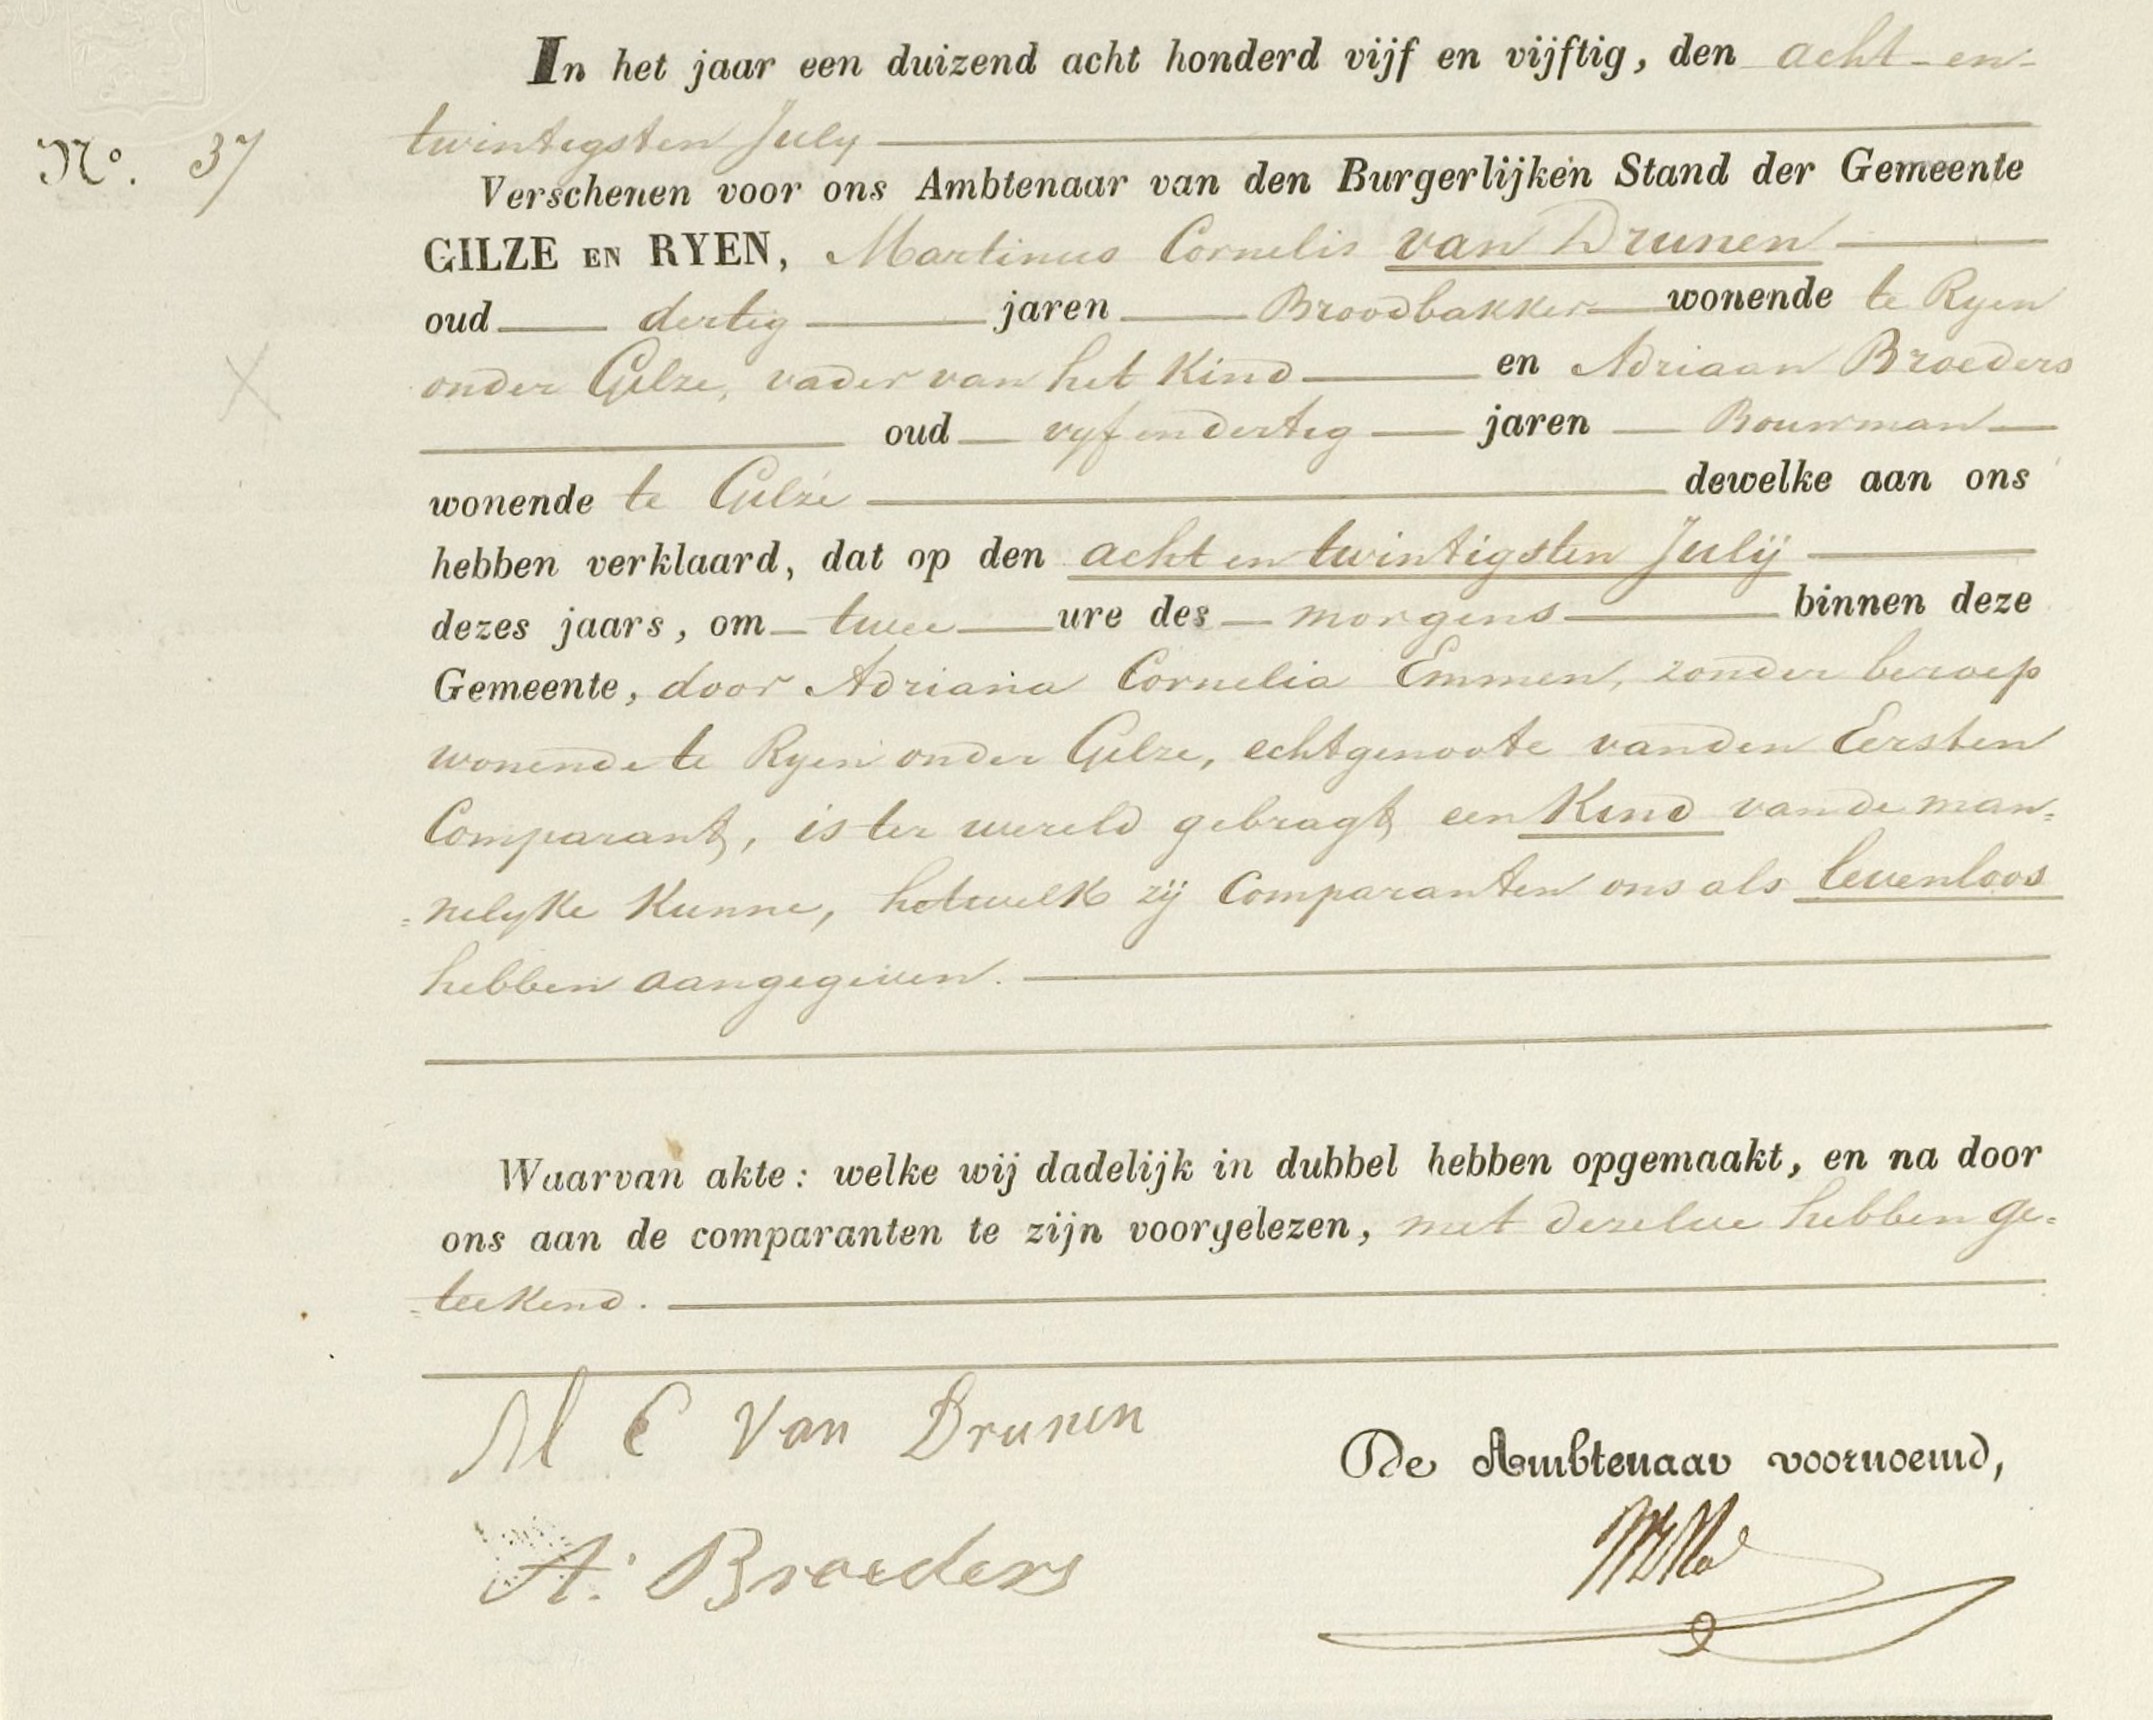 In het jaar een duizend acht honderd vijf en vijftig, den acht-en-
twintigsten July
N°. 37
Verschenen voor ons Ambtenaar van den Burgerlijken Stand der Gemeente
GILZE EN RYEN, Martinus Cornelis van Drunen
oud dertig jaren Broodbakker wonende te Ryen
onder Gilze, vader van het Kind en Adriaan Broeders
oud vyf en dertig jaren Bouwman
wonende te Gilze dewelke aan ons
hebben verklaard, dat op den acht en twintigsten Julij
dezes jaars, om twee ure des morgens binnen deze
Gemeente, door Adriana Cornelia Emmen, zonder beroep
wonende te Ryen onder Gilze, echtgenoote van den Eersten
Comparant, is ter wereld gebragt een Kind van de man=
=nelyke Kunne, hetwelk zij Comparanten ons als levenloos
hebben aangegeven.
Waarvan akte: welke wij dadelijk in dubbel hebben opgemaakt, en na door
ons aan de comparanten te zijn voorgelezen, met dezelve hebben ge=
=teekend.
M C Van Drunen
De Ambtenaar voornoemd,
A. Broeders